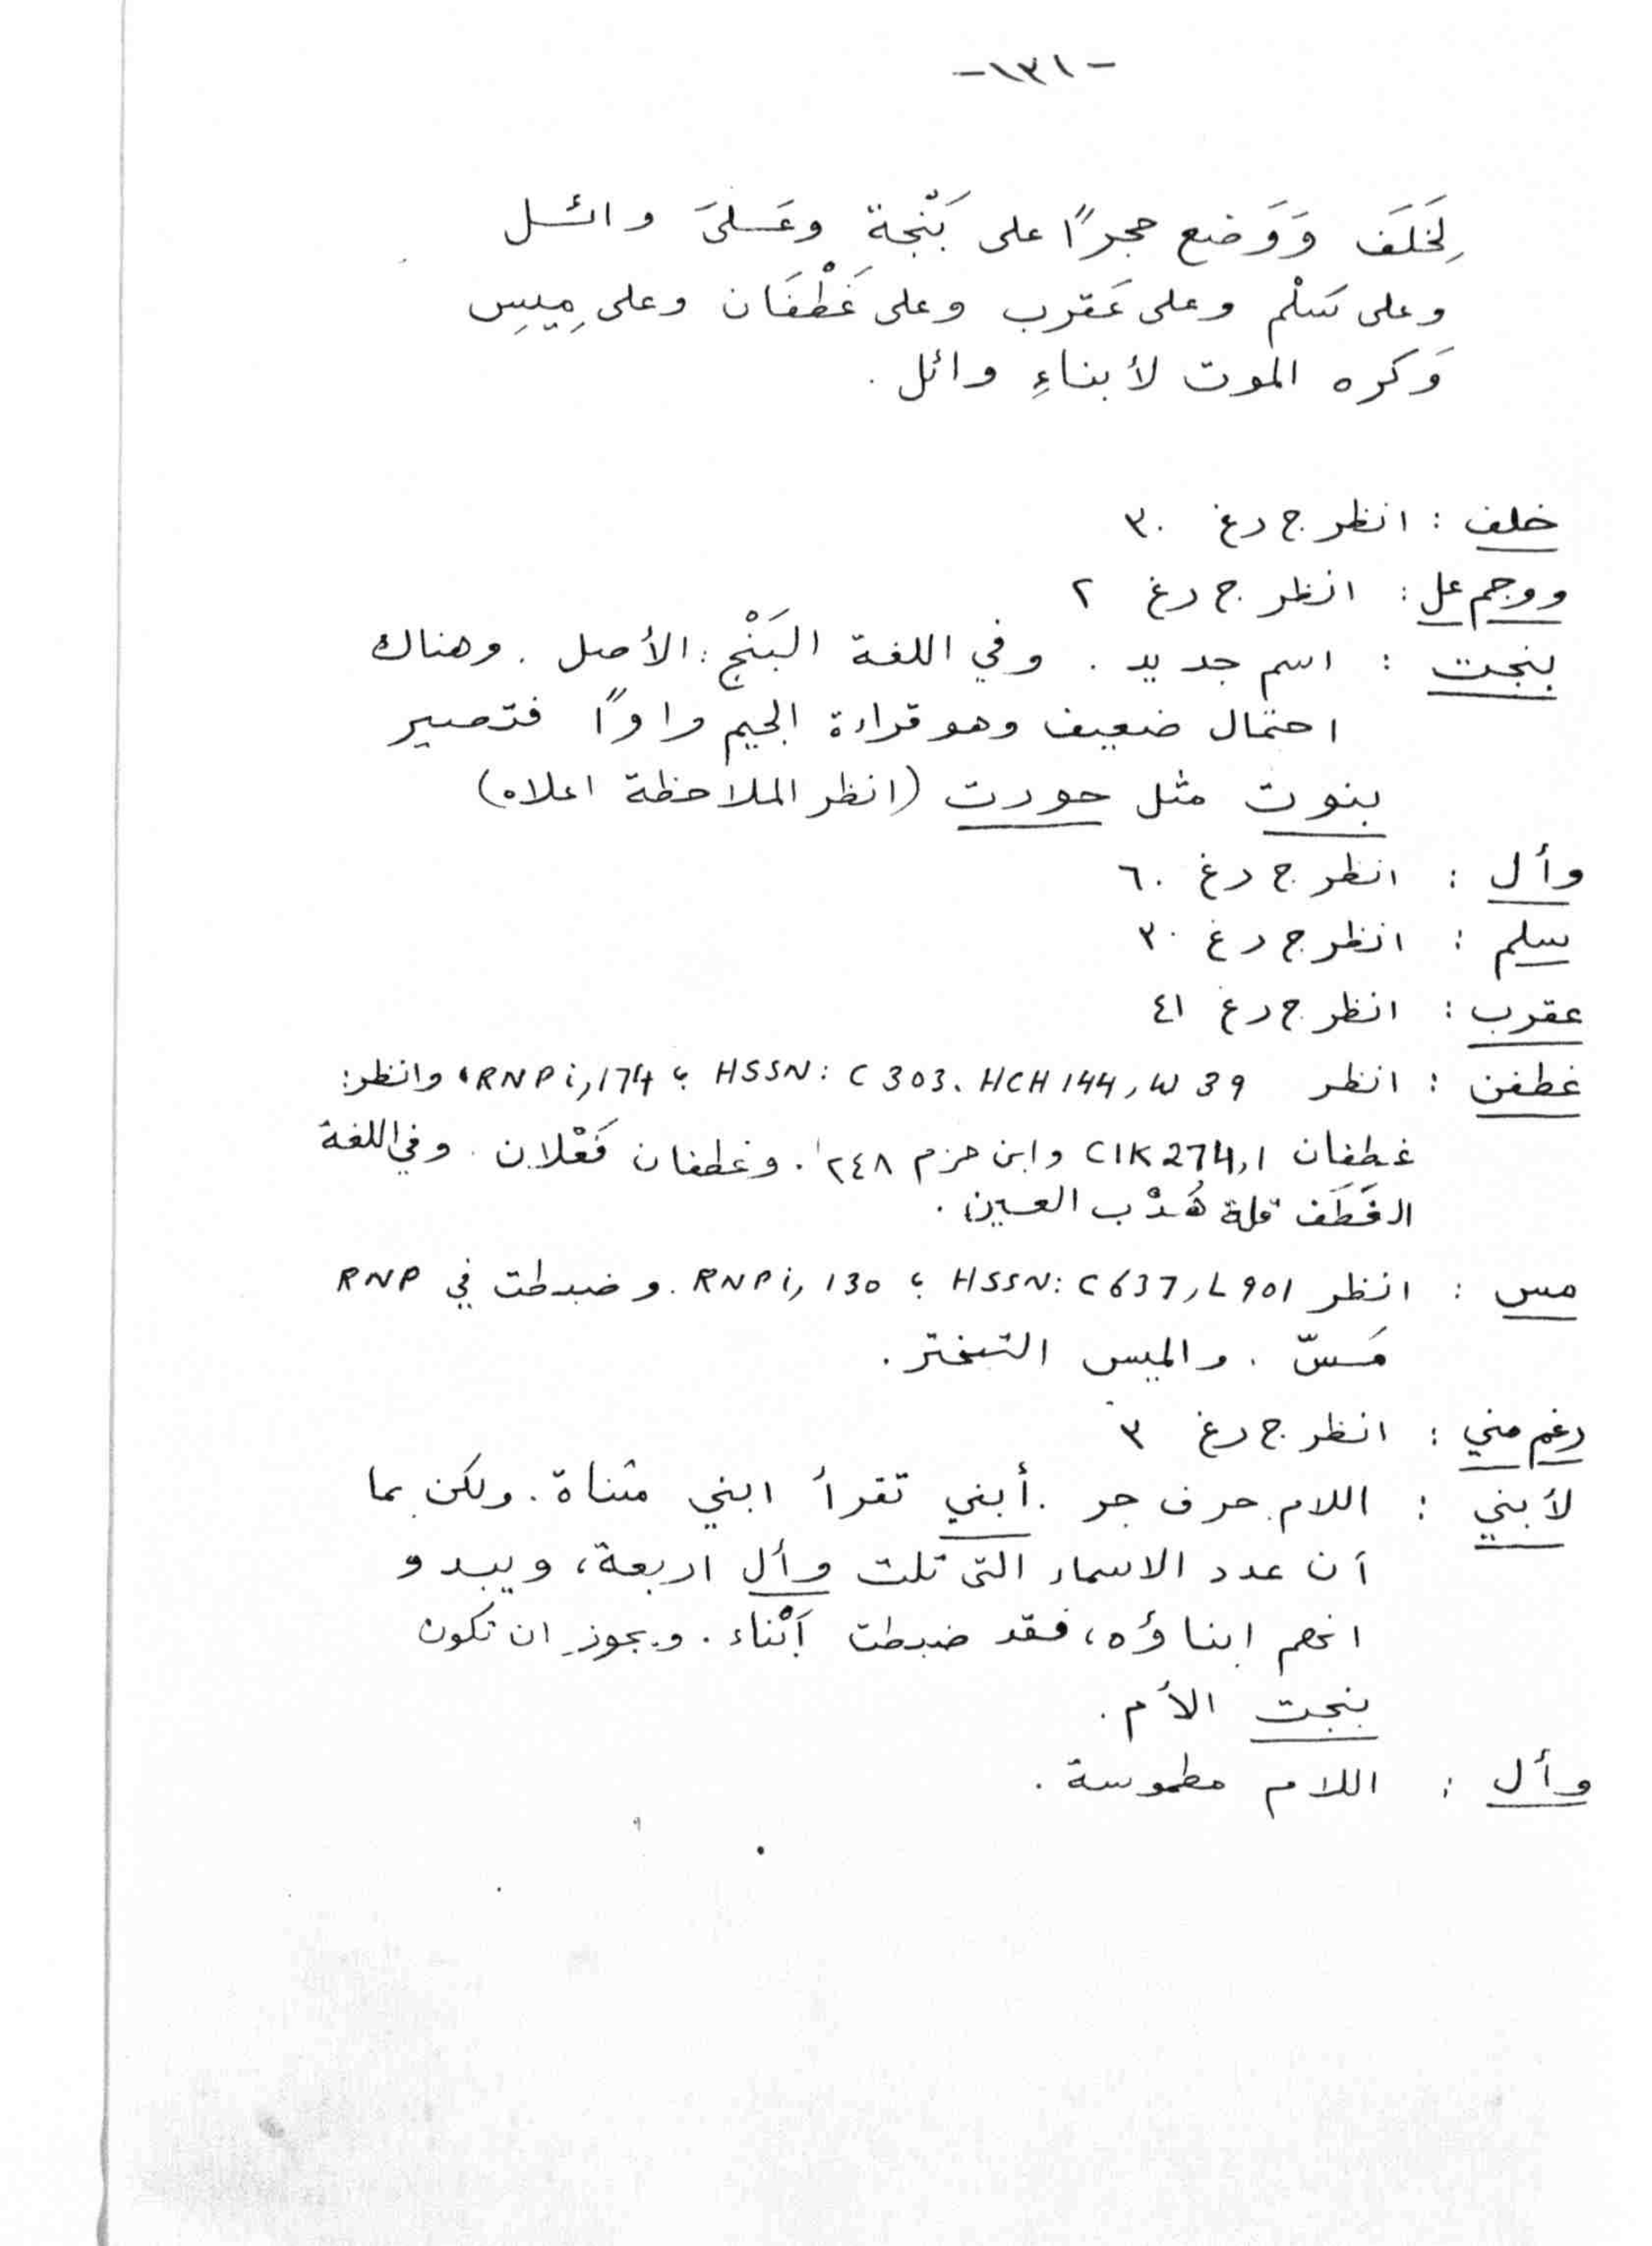 -١٣١-
لِخَلَفَ وَوَضع حجراً على بَنْجة وعَلىَ وائل
وعلى سَلْم وعلى عَقرب وعلى غَطْفَان وعلى مِيسِ
وَكره الموت لأبناءِ وائل .
خلف : انظر ج دغ ٣٠
ووجم عل : انظر ج دغ ٢
بنجت : اسم جديد . وفي اللغة البَنْج : الأصل . وهناك
احتمال ضعيف وهو قراءة الجيم واواً فتصير
بنوت مثل حودت (انظر الملاحظة اعلاه)
وأل : انظر ج دغ ٦٠
سلم : انظر ج دغ ٣٠
عقرب : انظر ج دغ ٤١
غطفن : انظر HSSN: C 303. HCH 144, W 39 ؛ RNP i, 174، وانظر:
غطفان CIK 274,1 وابن حزم ٢٤٨ . وغطفان فَعْلان . وفي اللغة
الغَطَف قلة هُدْب العين .
مس : انظر HSSN: C 637, L 901 ؛ RNP i, 130 . وضبطت في RNP
مَسّ . والميس التبختر .
رغم مني : انظر ج دغ ٣
لأبني : اللام حرف جر . أبني تقرأ ابني مثناة . ولكن بما
أن عدد الاسماء التي تلت وأل اربعة، ويبدو
انهم ابناؤه، فقد ضبطت أَبْناء . ويجوز ان تكون
بنجت الأم .
وأل : اللام مطموسة .